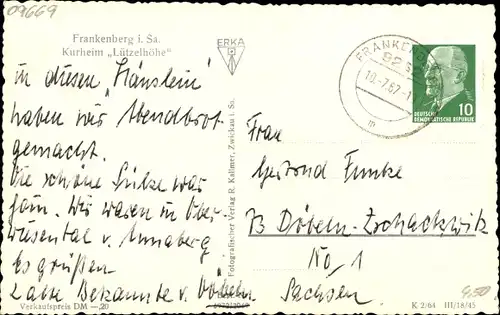 09669
Frankenberg i. Sa.
Kurheim „Lützelhöhe"
ERKA
FRANKENB
92
10.-7.67.-1
DEUTSCHE
DEMOKRATISCHE REPUBLIK
10
in diesen „Häuslein"
haben wir Abendbrot
gemacht.
Die schöne Brücke war
fein. Wir waren in Ober
wiesental u. Annaberg
Es grüßen
Bekannte v. Döbeln
Fotografischer Verlag R. Kallmer, Zwickau i. Sa.
Frau
Gertrud Funke
73 Döbeln-Zschackwitz
No, 1
Sachsen
Verkaufspreis DM —,20
K 2/64 III/18/45
4,50